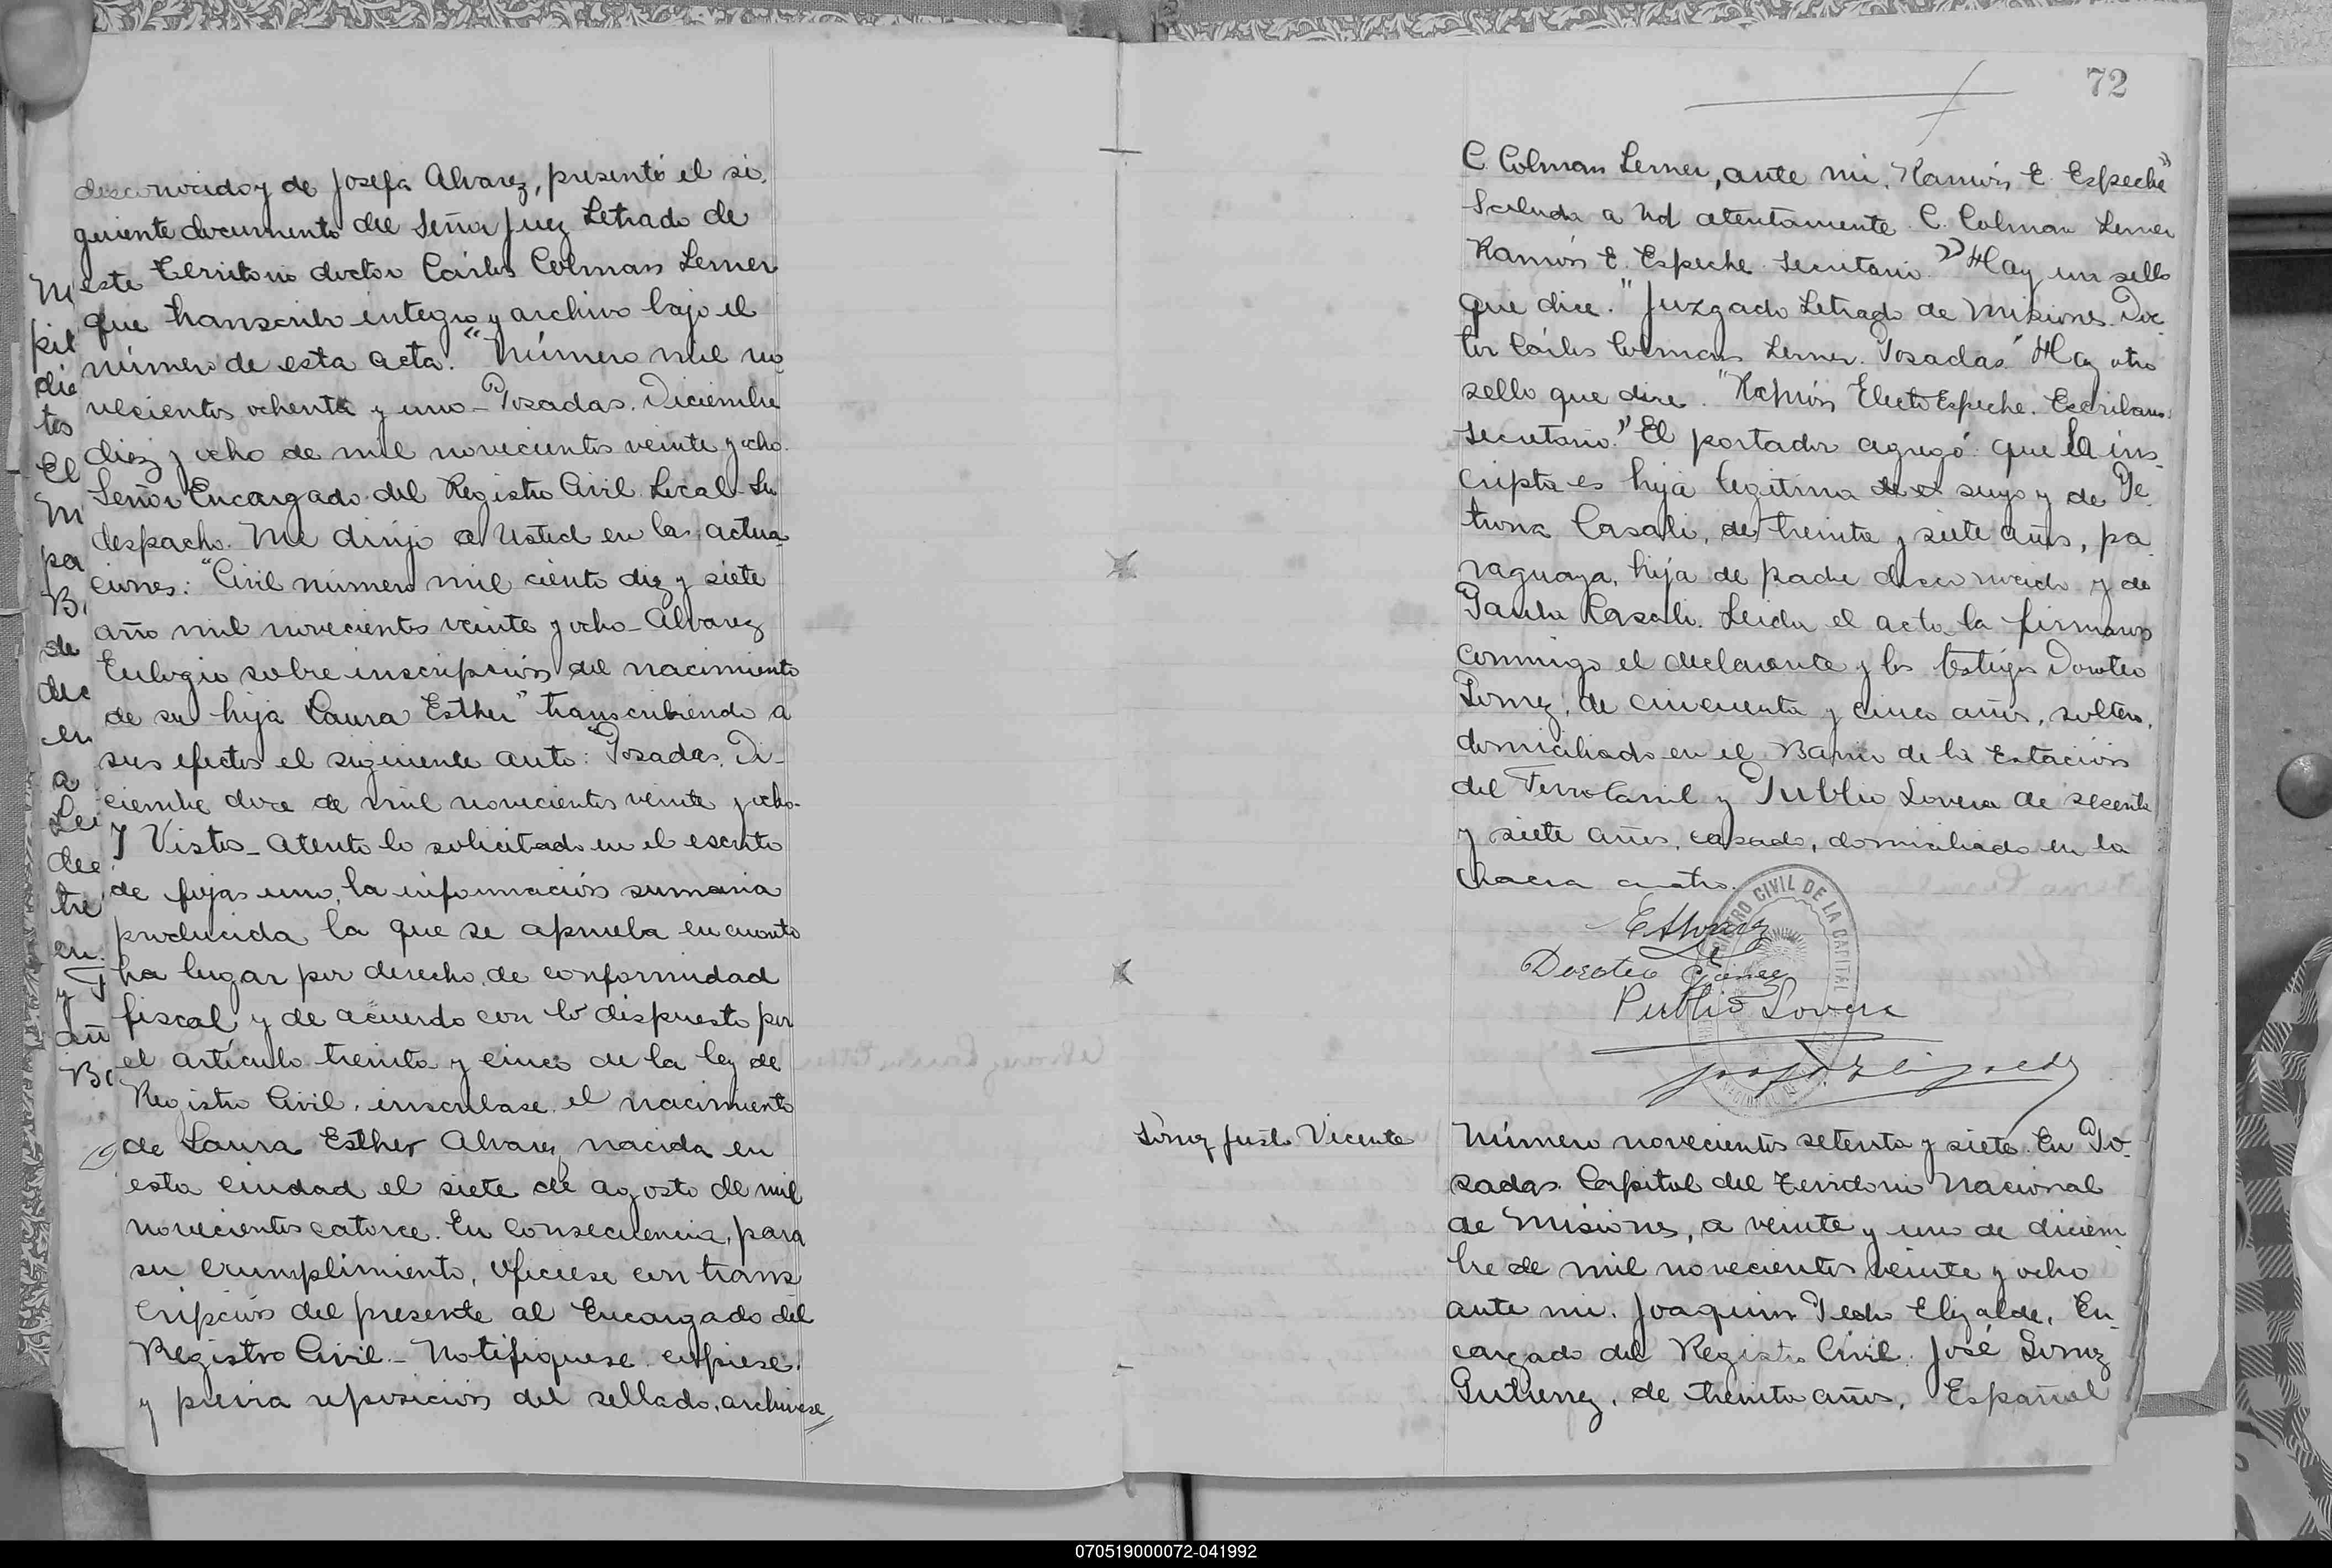 desconocido y de Josefa Alvarez, presentó el si-
guiente documento del Señor Juez Letrado de
este Territorio doctor Cárlos Colman Lerner
que transcribo integro y archivo bajo el
número de esta acta. "Número mil no
vecientos ochenta y uno - Posadas. Diciembre
diez y ocho de mil novecientos veinte y ocho.
Señor Encargado del Registro Civil Local - Su
despacho. Me dirijo a Usted en las actua
ciones: "Civil número mil ciento diez y siete
año mil novecientos veinte y ocho - Alvarez
Eulogio sobre inscripción del nacimiento
de su hija Laura Esther" transcribiendo a
sus efectos el siguiente auto: "Posadas. Di-
ciembre doce de mil novecientos veinte y ocho-
Y Vistos - Atento lo solicitado en el escrito
de fojas uno, la información sumaria
producida la que se aprueba en cuanto
ha lugar por derecho, de conformidad
fiscal y de acuerdo con lo dispuesto por
el artículo treinta y cinco de la ley de
Registro Civil, inscríbase el nacimiento
de Laura Esther Alvarez nacida en
esta ciudad el siete de agosto de mil
novecientos catorce. En consecuencia, para
su cumplimiento, ofíciese con trans
cripción del presente al Encargado del
Registro Civil - Notifíquese cópiese.
y previa reposición del sellado, archívese
72
C. Colman Lerner, ante mi, Ramón E. Espeche"
Saluda a Ud atentamente. C. Colman Lerner
Ramón E. Espeche. Secretario." Hay un sello
que dice. "Juzgado Letrado de Misiones. Doc
tor Cárlos Colman Lerner. Posadas" Hay otro
sello que dice. "Ramón Electo Espeche. Escribano.
Secretario." El portador agregó: que la ins
cripta es hija legítima suyo y de Pe
trona Casali, de treinta y siete años, pa
raguaya, hija de padre desconocido y de
Paula Casali. Leida el acta la firmaron
conmigo el declarante y los testigos Doroteo
Gomez, de cincuenta y cinco años, soltero,
domiciliado en el Barrio de la Estación
del Ferrocarril y Publio Lovera de sesenta
y siete años, casado, domiciliado en la
chacra cuatro.
REGISTRO CIVIL DE LA CAPITAL
EAlvarez
Doroteo Gomez
Publio Lovera
Gomez Justo Vicente
Número novecientos setenta y siete. En Po-
sadas Capital del Territorio Nacional
de Misiones, a veinte y uno de diciem
bre de mil novecientos veinte y ocho
ante mi. Joaquin Pedro Elizalde, En-
cargado del Registro Civil. José Gomez
Gutierrez, de treinta años, Español
M
die
tes
El
M
pa
B
de
dec
en
a
Lei
dec
tre
en
y
añ
070519000072-041992